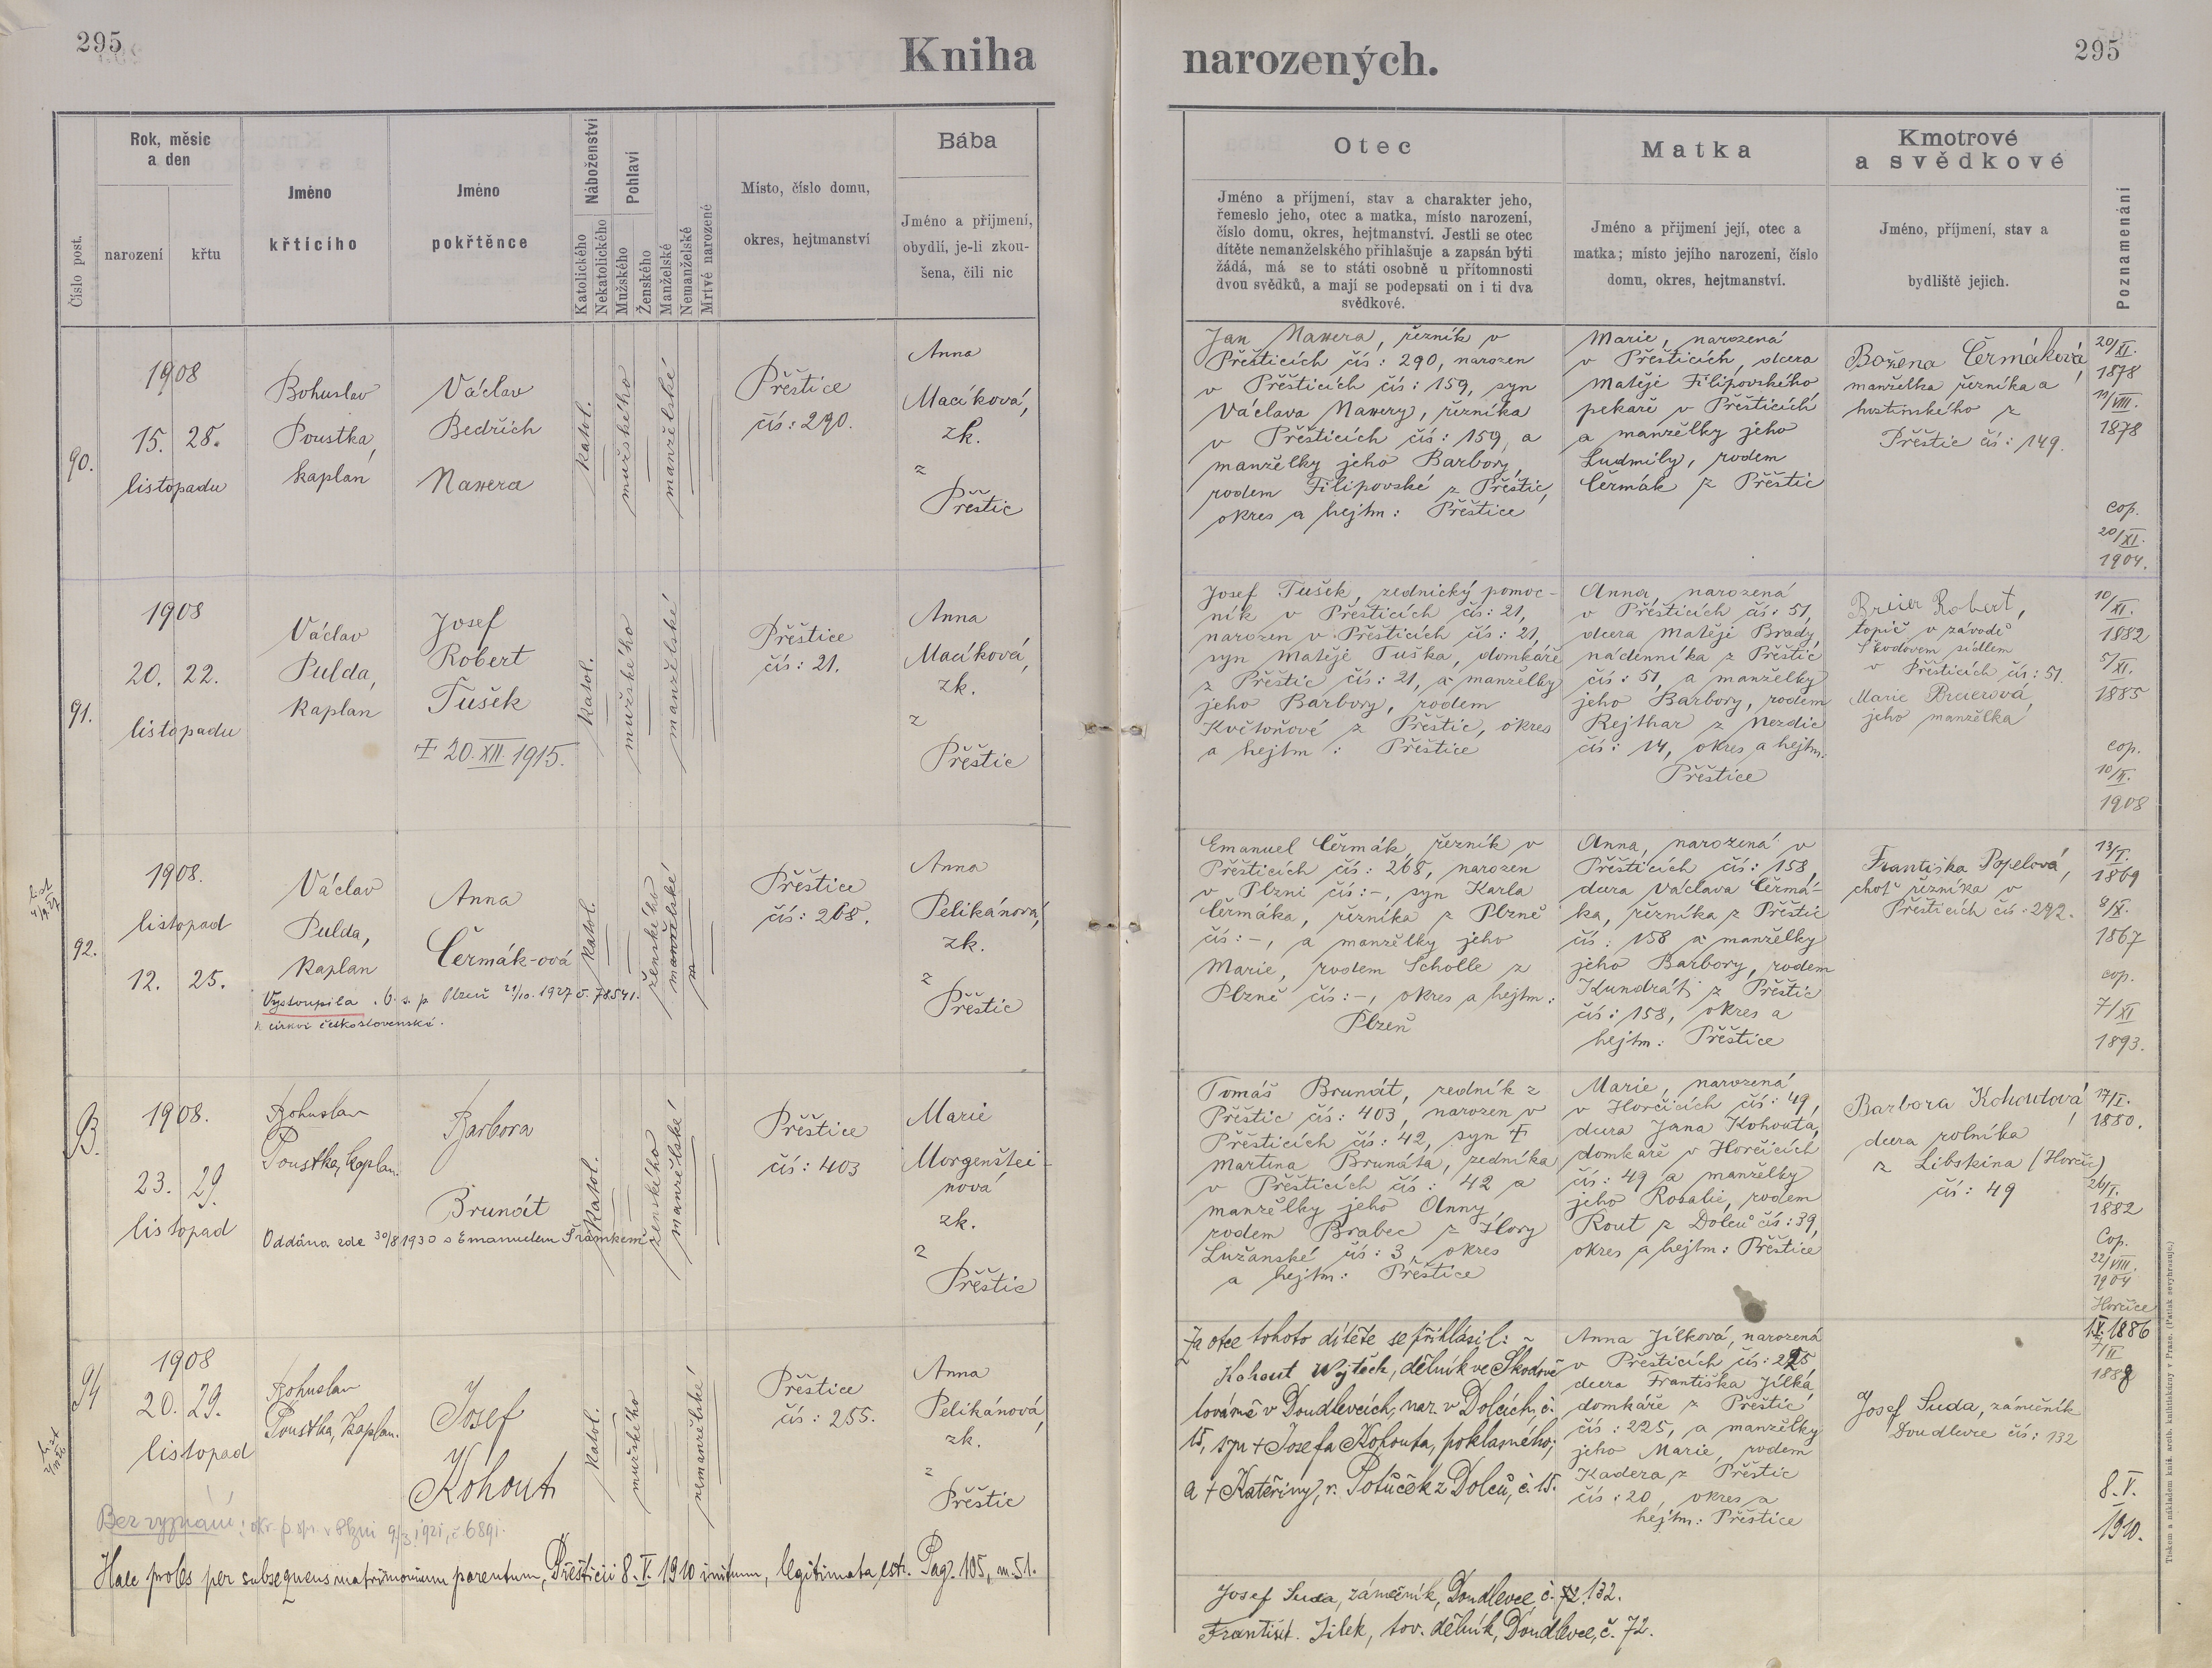 295
Kniha
narozených.
295
Číslo post.
Rok, měsíc
a den
narození
křtu
Jméno
křtícího
Jméno
pokřtěnce
Náboženství
Katolického
Nekatolického
Pohlaví
Mužského
Ženského
Manželské
Nemanželské
Mrtvě narozené
Místo, číslo domu,
okres, hejtmanství
Bába
Jméno a příjmení,
obydlí, je-li zkou-
šena, čili nic
Otec
Jméno a příjmení, stav a charakter jeho,
řemeslo jeho, otec a matka, místo narození,
číslo domu, okres, hejtmanství. Jestli se otec
dítěte nemanželského přihlašuje a zapsán býti
žádá, má se to státi osobně u přítomnosti
dvou svědků, a mají se podepsati on i ti dva
svědkové.
Matka
Jméno a příjmení její, otec a
matka; místo jejího narození, číslo
domu, okres, hejtmanství.
Kmotrové
a svědkové
Jméno, příjmení, stav a
bydliště jejich.
Poznamenání
90.
1908
15. 28.
listopadu
Bohuslav
Poustka,
kaplan
Václav
Bedřich
Nawera
katol.
mužského
manželské
Přeštice
čís: 290.
Anna
Macíková,
zk.
z
Přeštic
Jan Nawera, řezník v
Přešticích čís: 290, narozen
v Přešticích čís: 159, syn
Václava Nawery, řezníka
v Přešticích čís: 159, a
manželky jeho Barbory,
rodem Filipovské z Přeštic,
okres a hejtm: Přeštice
Marie, narozená
v Přešticích, dcera
Matěje Filipovského
pekaře v Přešticích
a manželky jeho
Ludmily, rodem
Čermák z Přeštic
Božena Čermáková,
manželka řezníka a
hostinského z
Přeštic čís: 149.
20/XI.
1878
11/VIII.
1878
cop.
20/XI.
1904.
91.
1908
20. 22.
listopadu
Václav
Pulda,
kaplan
Josef
Robert
Tušek
† 20. XII. 1915.
katol.
mužského
manželské
Přeštice
čís: 21.
Anna
Macíková,
zk.
z
Přeštic
Josef Tušek, zednický pomoc-
ník v Přešticích čís: 21,
narozen v Přešticích čís: 21,
syn Matěje Tuška, domkáře
z Přeštic čís: 21, a manželky
jeho Barbory, rodem
Květoňové z Přeštic, okres
a hejtm: Přeštice
Anna, narozená
v Přešticích čís: 51,
dcera Matěje Brady,
nádenníka z Přeštic
čís: 51, a manželky
jeho Barbory, rodem
Rejthar z Nezdic
čís: 14, okres a hejtm.
Přeštice
Breier Robert,
topič v závodě
Škodovem sídlem
v Přešticích čís: 51.
Marie Breierová,
jeho manželka
10/XI.
1882
5/XI.
1885
cop.
10/II.
1908
92.
1908.
listopad
12. 25.
Václav
Pulda,
kaplan
Anna
Čermák-ová
Vystoupila
Plzeň 21/10. 1927 č. 78541.
k církvi československé.
katol.
ženského
manželské
Přeštice
čís: 268.
Anna
Pelikánová,
zk.
z
Přeštic
Emanuel Čermák, řezník v
Přešticích čís: 268, narozen
v Plzni čís: -, syn Karla
Čermáka, řezníka z Plzně
čís: -, a manželky jeho
Marie, rodem Scholle z
Plzně čís: -, okres a hejtm:
Plzeň
Anna, narozená v
Přešticích čís: 158,
dcera Václava Čermá-
ka, řezníka z Přeštic
čís: 158 a manželky
jeho Barbory, rodem
Kundrát z Přeštic
čís: 158, okres a
hejtm: Přeštice
Františka Popelová,
choť řezníka v
Přešticích čís: 292.
13/I.
1869
8/X.
1867
cop.
7/XI
1893.
1908.
23. 29.
listopad
Bohuslav
Poustka, kaplan.
Barbora
Brunát
Oddána zde 30/8 1930 s Emanuelem Šrámkem
katol.
ženského
manželské
Přeštice
čís: 403
Marie
Morgenštei-
nová
zk.
z
Přeštic
Tomáš Brunát, zedník z
Přeštic čís: 403, narozen v
Přešticích čís: 42, syn †
Martina Brunáta, zedníka
v Přešticích čís: 42 a
manželky jeho Anny,
rodem Brabec z Hory
Lužanské čís: 3, okres
a hejtm: Přeštice
Marie, narozená
v Horčicích čís: 49,
dcera Jana Kohouta,
domkáře v Horčicích
čís: 49 a manželky
jeho Rosalie, rodem
Rout z Dolců čís: 39,
okres a hejtm: Přeštice
Barbora Kohoutová,
dcera rolníka
z Libskina (Horčic)
čís: 49
17/I.
1880.
26/I.
1882
Cop.
22/VIII.
1904
Horčice
94
1908
20. 29.
listopad
Bohuslav
Poustka, Kaplan.
Josef
Kohout
katol.
mužského
nemanželské
Přeštice
čís: 255.
Anna
Pelikánová,
zk.
z
Přeštic
Za otce tohoto dítěte se přihlásil:
Kohout Vojtěch, dělník ve Škodově
továrně v Doudlevcích, nar. v Dolcích, č.
15, syn † Josefa Kohouta, poklasného,
a † Kateřiny, r. Potůček z Dolců, č. 15.
Anna Jílková, narozená
v Přešticích čís: 225,
dcera Františka Jílka,
domkáře z Přeštic
čís: 225, a manželky
jeho Marie, rodem
Kadera z Přeštic
čís: 20, okres a
hejtm: Přeštice
Josef Suda, zámečník
Doudlevce čís: 132
1886
1888
8. V.
1910.
Bez vyznání: okr. p. spr. v Plzni 9/3. 1921, č. 6891.
Haec proles per subsequens matrimonium parentum, Přešticii 8. V. 1910 initum, legitimata est. Pag. 105, n. 51.
Josef Suda, zámečník, Doudlevce, č. 132.
Františ. Jílek, tov. dělník, Doudlevce, č. 72.
Tiskem a nákladem kníž. arcib. knihtiskárny v Praze. (Patisk se vyhrazuje.)